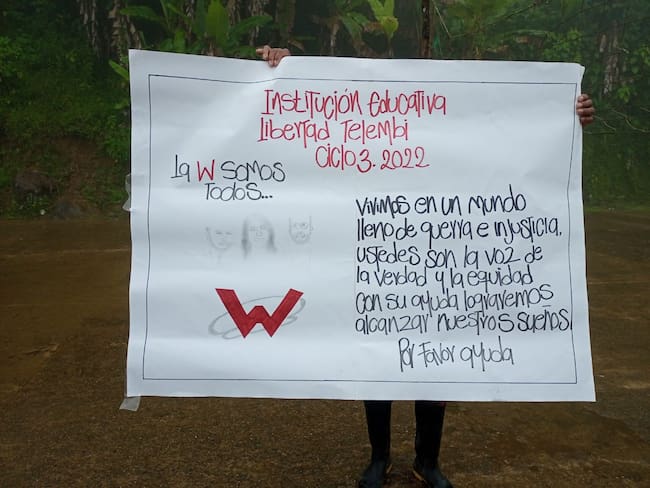 Institución Educativa
Libertad Telembi
Ciclo 3. 2022
La W somos
Todos...
Vivimos en un mundo
lleno de guerra e injusticia,
ustedes son la voz de
la verdad y la equidad
con su ayuda lograremos
alcanzar nuestros sueños
Por Favor ayuda
W